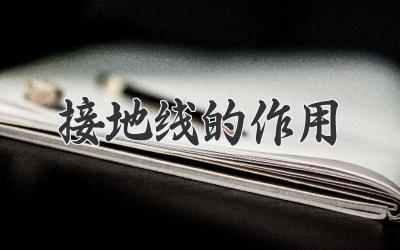 接地线的作用